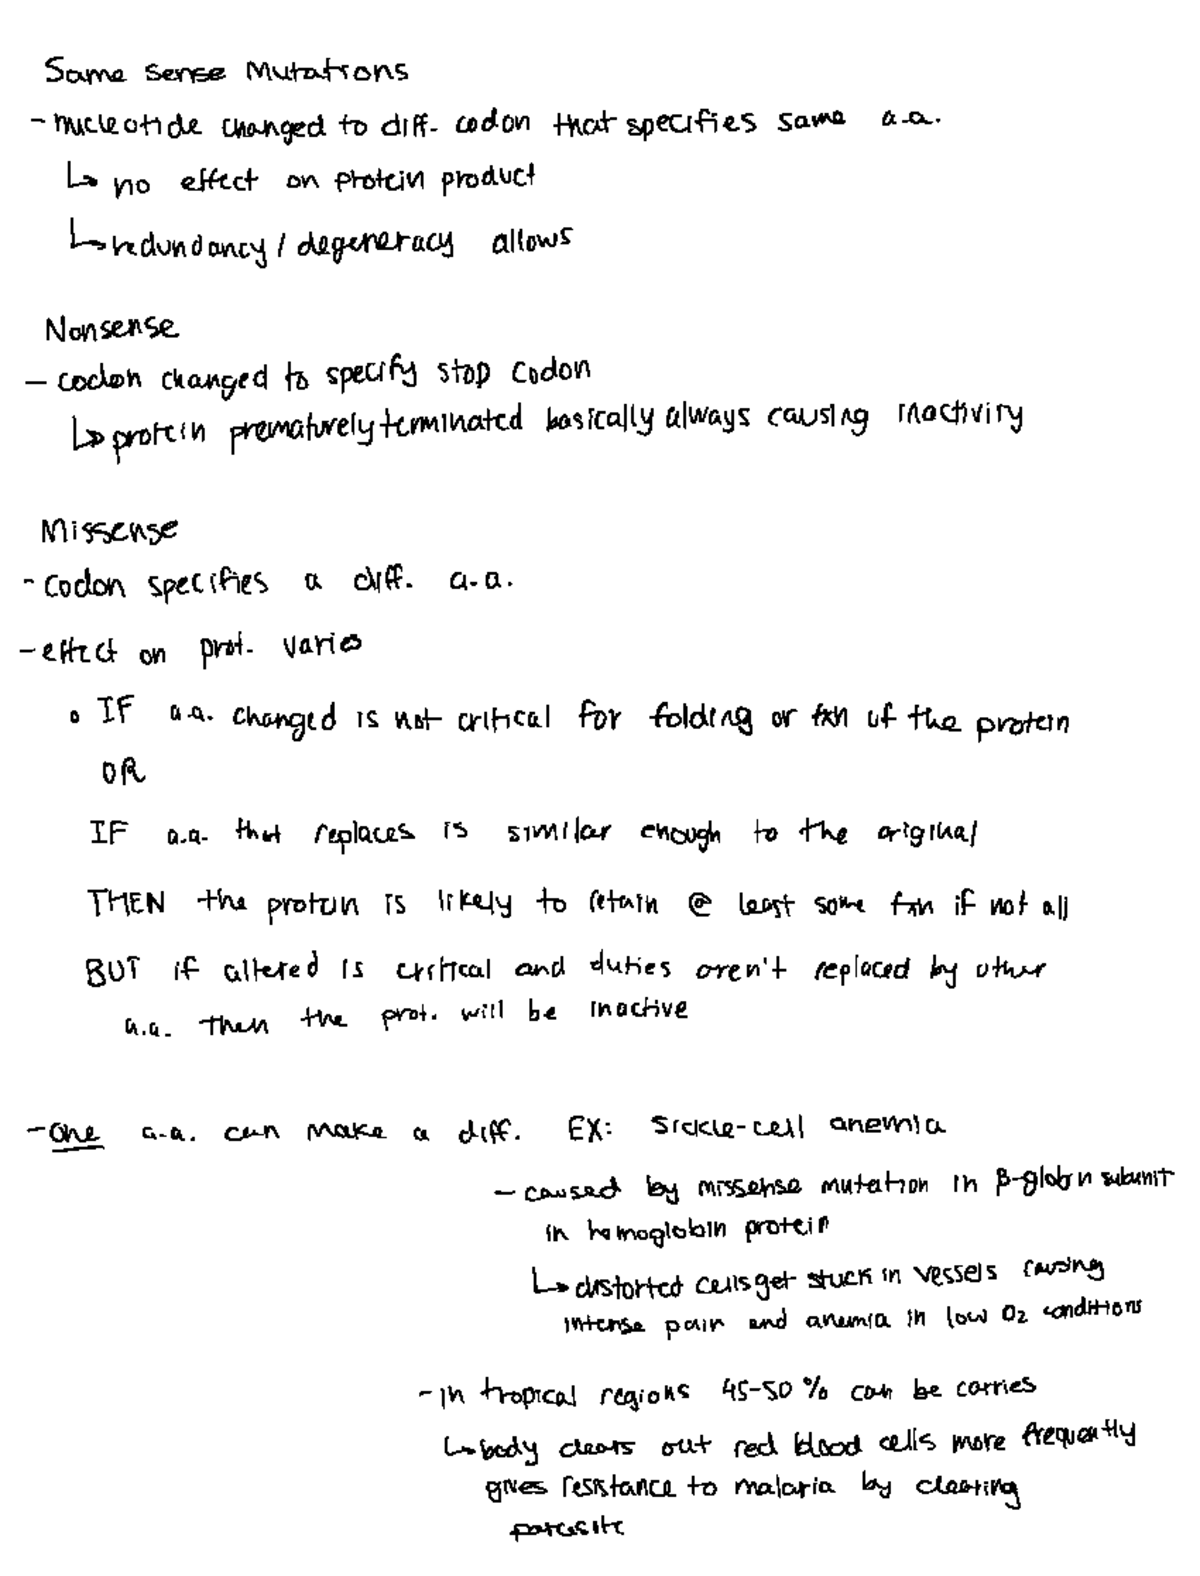 Same sense Mutations
- nucleotide changed to diff. codon that specifies same a.a.
↳ no effect on protein product
↳ redundancy / degeneracy allows
Nonsense
- codon changed to specify stop codon
↳ protein prematurely terminated basically always causing inactivity
Missense
- codon specifies a diff. a.a.
- effect on prot. varies
• IF a.a. changed is not critical for folding or fxn of the protein
OR
IF a.a. that replaces is similar enough to the original
THEN the protein is likely to retain @ least some fxn if not all
BUT if altered is critical and duties aren't replaced by other
a.a. then the prot. will be inactive
- one a.a. can make a diff. EX: sickle-cell anemia
- caused by missense mutation in β-globin subunit
in hemoglobin protein
↳ distorted cells get stuck in vessels causing
intense pain and anemia in low O2 conditions
- in tropical regions 45-50% can be carries
↳ body clears out red blood cells more frequently
gives resistance to malaria by clearing
parasite